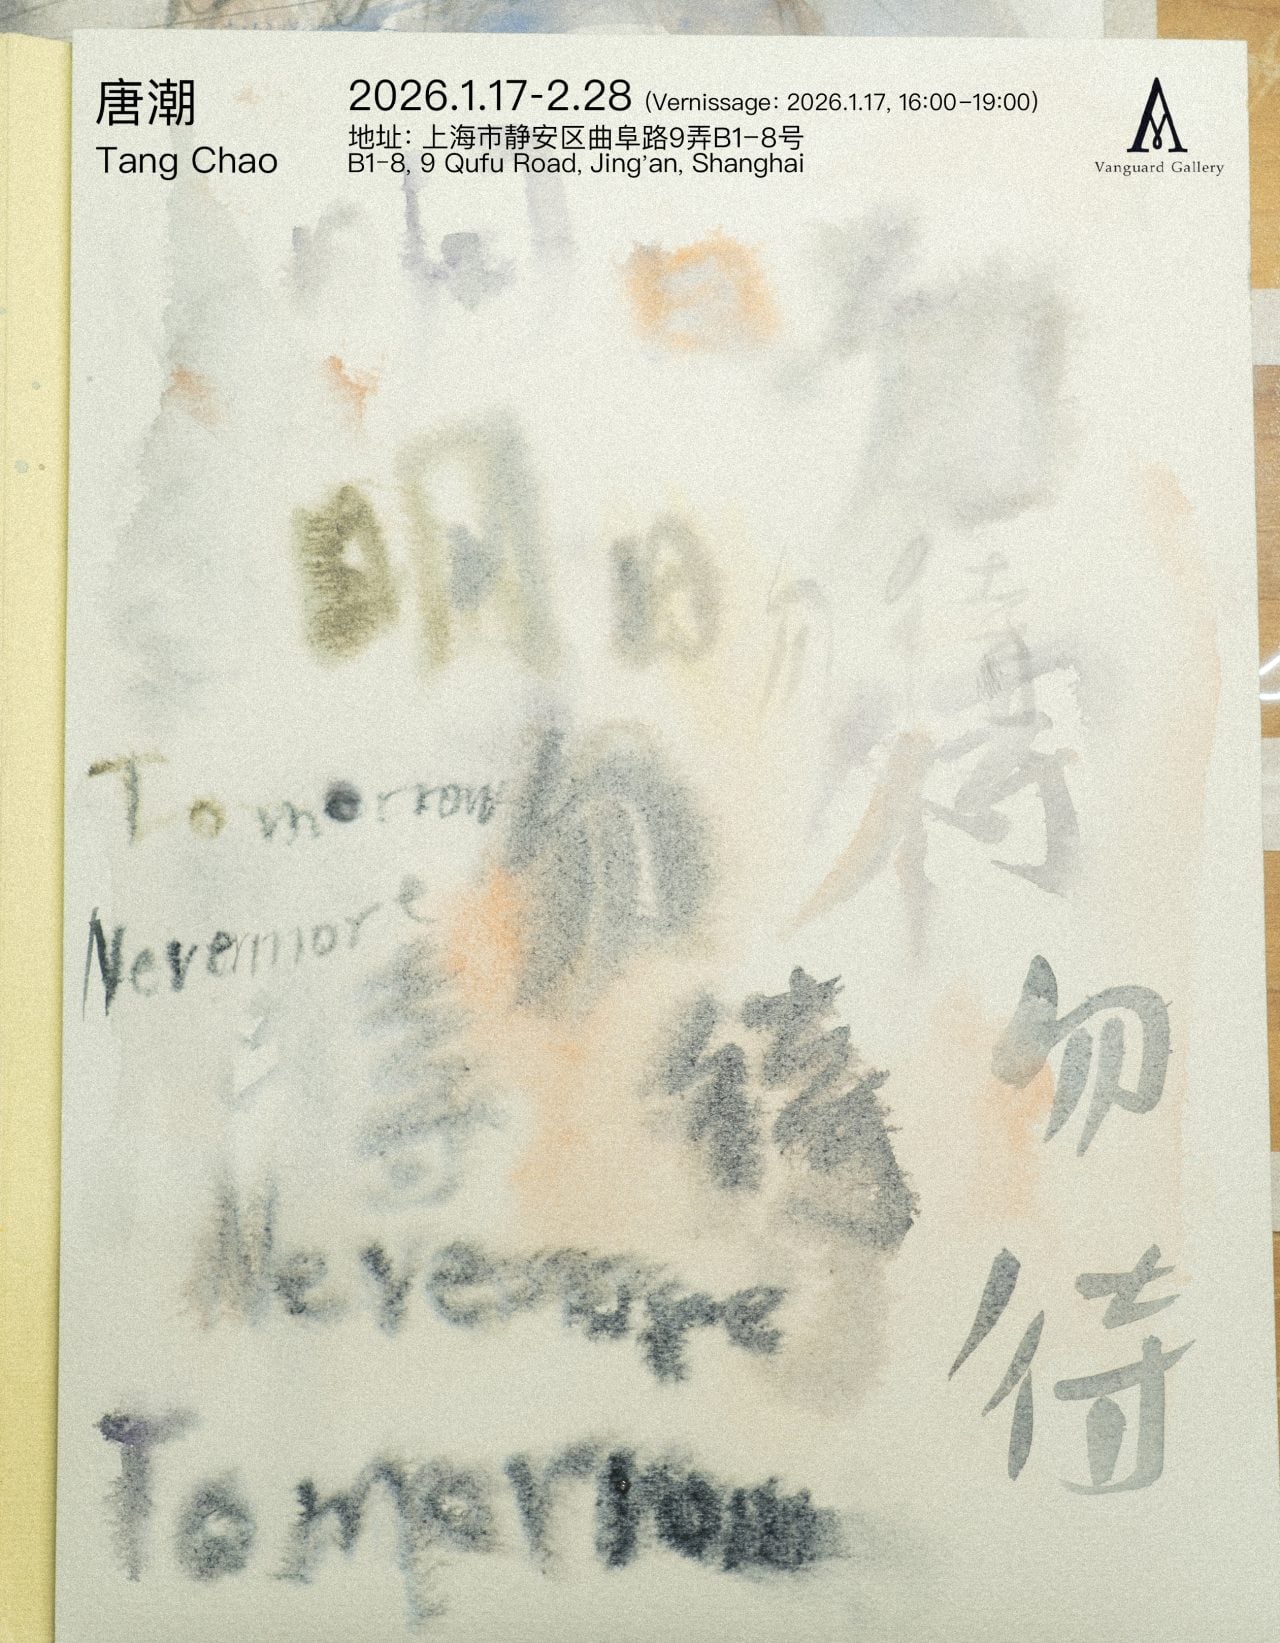 唐潮
Tang Chao
2026.1.17-2.28 (Vernissage: 2026.1.17, 16:00-19:00)
地址: 上海市静安区曲阜路9弄B1-8号
B1-8, 9 Qufu Road, Jing'an, Shanghai
Vanguard Gallery
明日
勿
待
Tomorrow
勿
Nevermore
待
勿
待
Nevermore
Tomorrow